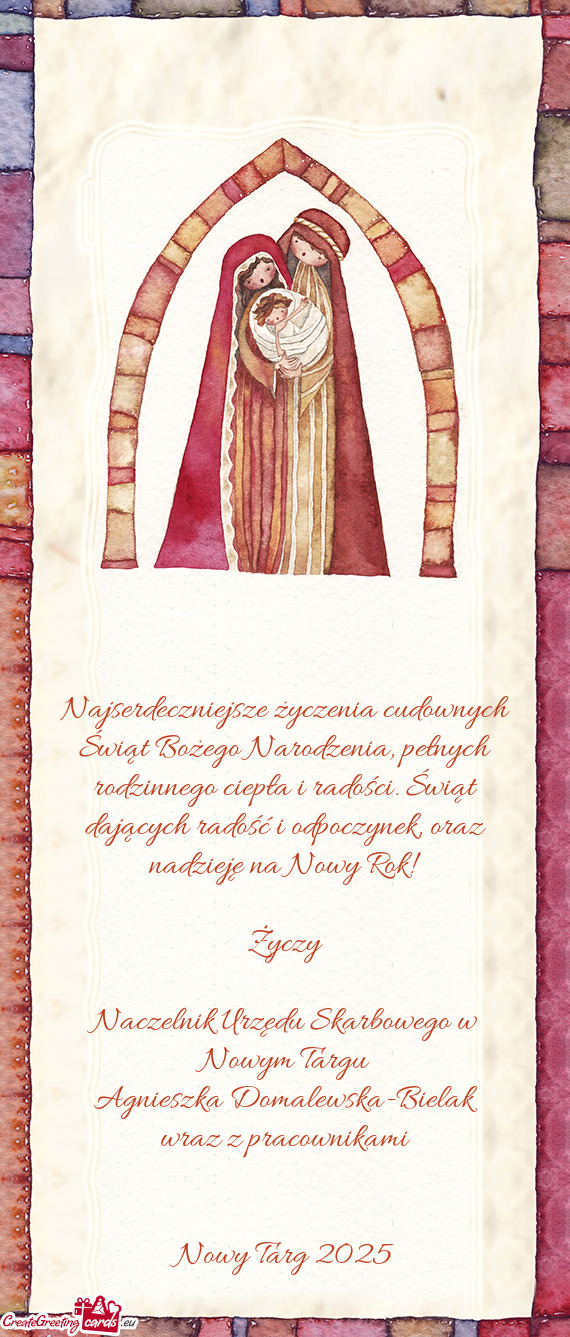 Najserdeczniejsze życzenia cudownych
Świąt Bożego Narodzenia, pełnych
rodzinnego ciepła i radości. Świąt
dających radość i odpoczynek, oraz
nadzieję na Nowy Rok!
Życzy
Naczelnik Urzędu Skarbowego w
Nowym Targu
Agnieszka Domalewska-Bielak
wraz z pracownikami
Nowy Targ 2025
CreateGreeting cards .eu